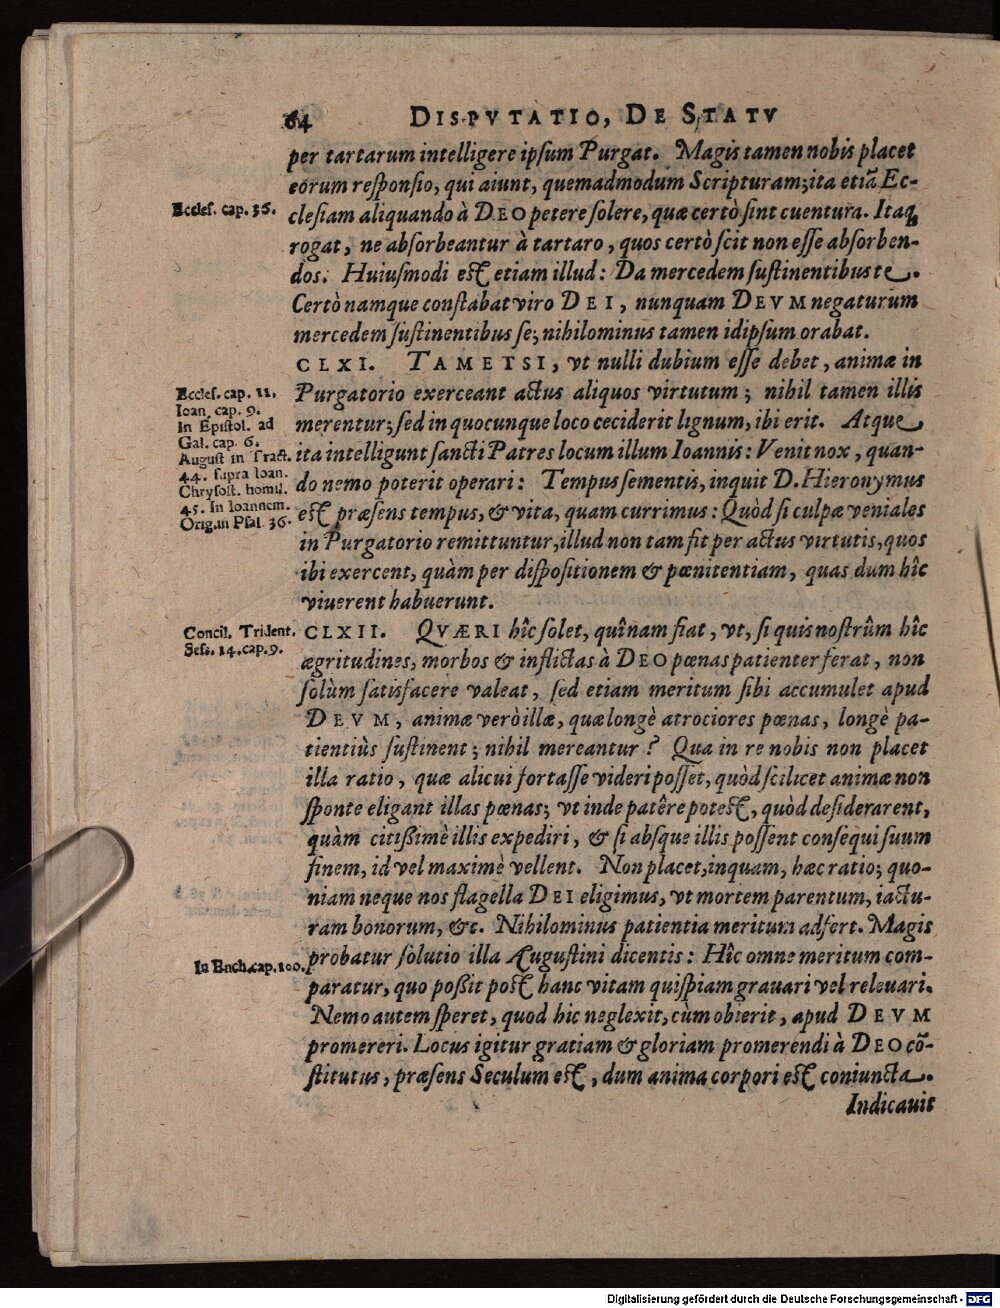 64 DISPVTATIO, DE STATV
per tartarum intelligere ipſum Purgat. Magis tamen nobis placet
eorum reſponſio, qui aiunt, quemadmodum Scripturam; ita etiã Ec-
Eccleſ. cap. 36.
cleſiam aliquando à DEO petere ſolere, quæ certò ſint euentura. Itaq́
rogat, ne abſorbeantur à tartaro, quos certò ſcit non eſſe abſorben-
dos. Huiuſmodi eſt etiam illud: Da mercedem ſuſtinentibus te.
Certò namque conſtabat viro DEI, nunquam DEVM negaturum
mercedem ſuſtinentibus ſe; nihilominus tamen idipſum orabat.
CLXI. TAMETSI, vt nulli dubium eſſe debet, animæ in
Eccleſ. cap. 11.
Ioan. cap. 9.
In Epiſtol. ad
Gal. cap. 6.
Auguſt in Tract.
44. ſupra Ioan.
Chryſoſt. homil.
45. In Ioannem.
Orig. in Pſal. 36.
Purgatorio exerceant actus aliquos virtutum; nihil tamen illis
merentur; ſed in quocunque loco ceciderit lignum, ibi erit. Atque
ita intelligunt ſancti Patres locum illum Ioannis: Venit nox, quan-
do nemo poterit operari: Tempus ſementis, inquit D. Hieronymus
eſt præſens tempus, & vita, quam currimus: Quòd ſi culpæ veniales
in Purgatorio remittuntur, illud non tam fit per actus virtutis, quos
ibi exercent, quàm per diſpoſitionem & pœnitentiam, quas dum hîc
viuerent habuerunt.
Concil. Trident.
Seſs. 14. cap. 9.
CLXII. QVÆRI hîc ſolet, quînam fiat, vt, ſi quis noſtrûm hîc
ægritudines, morbos & inflictas à DEO pœnas patienter ferat, non
ſolùm ſatisfacere valeat, ſed etiam meritum ſibi accumulet apud
DEVM, animæ verò illæ, quæ longè atrociores pœnas, longè pa-
tientiùs ſuſtinent; nihil mereantur? Qua in re nobis non placet
illa ratio, quæ alicui fortaſſe videri poſſet, quòd ſcilicet animæ non
ſponte eligant illas pœnas; vt inde patêre poteſt, quòd deſiderarent,
quàm citißimè illis expediri, & ſi abſque illis poſſent conſequi ſuum
finem, id vel maximè vellent. Non placet, inquam, hæc ratio; quo-
niam neque nos flagella DEI eligimus, vt mortem parentum, iactu-
ram bonorum, &c. Nihilominus patientia meritum adfert. Magis
In Ench. cap. 100.
probatur ſolutio illa Auguſtini dicentis: Hîc omne meritum com-
paratur, quo poßit poſt hanc vitam quiſpiam grauari vel releuari.
Nemo autem ſperet, quod hic neglexit, cùm obierit, apud DEVM
promereri. Locus igitur gratiam & gloriam promerendi à DEO cõ-
ſtitutus, præſens Seculum eſt, dum anima corpori eſt coniuncta.
Indicauit
Digitalisierung gefördert durch die Deutsche Forschungsgemeinschaft - DFG